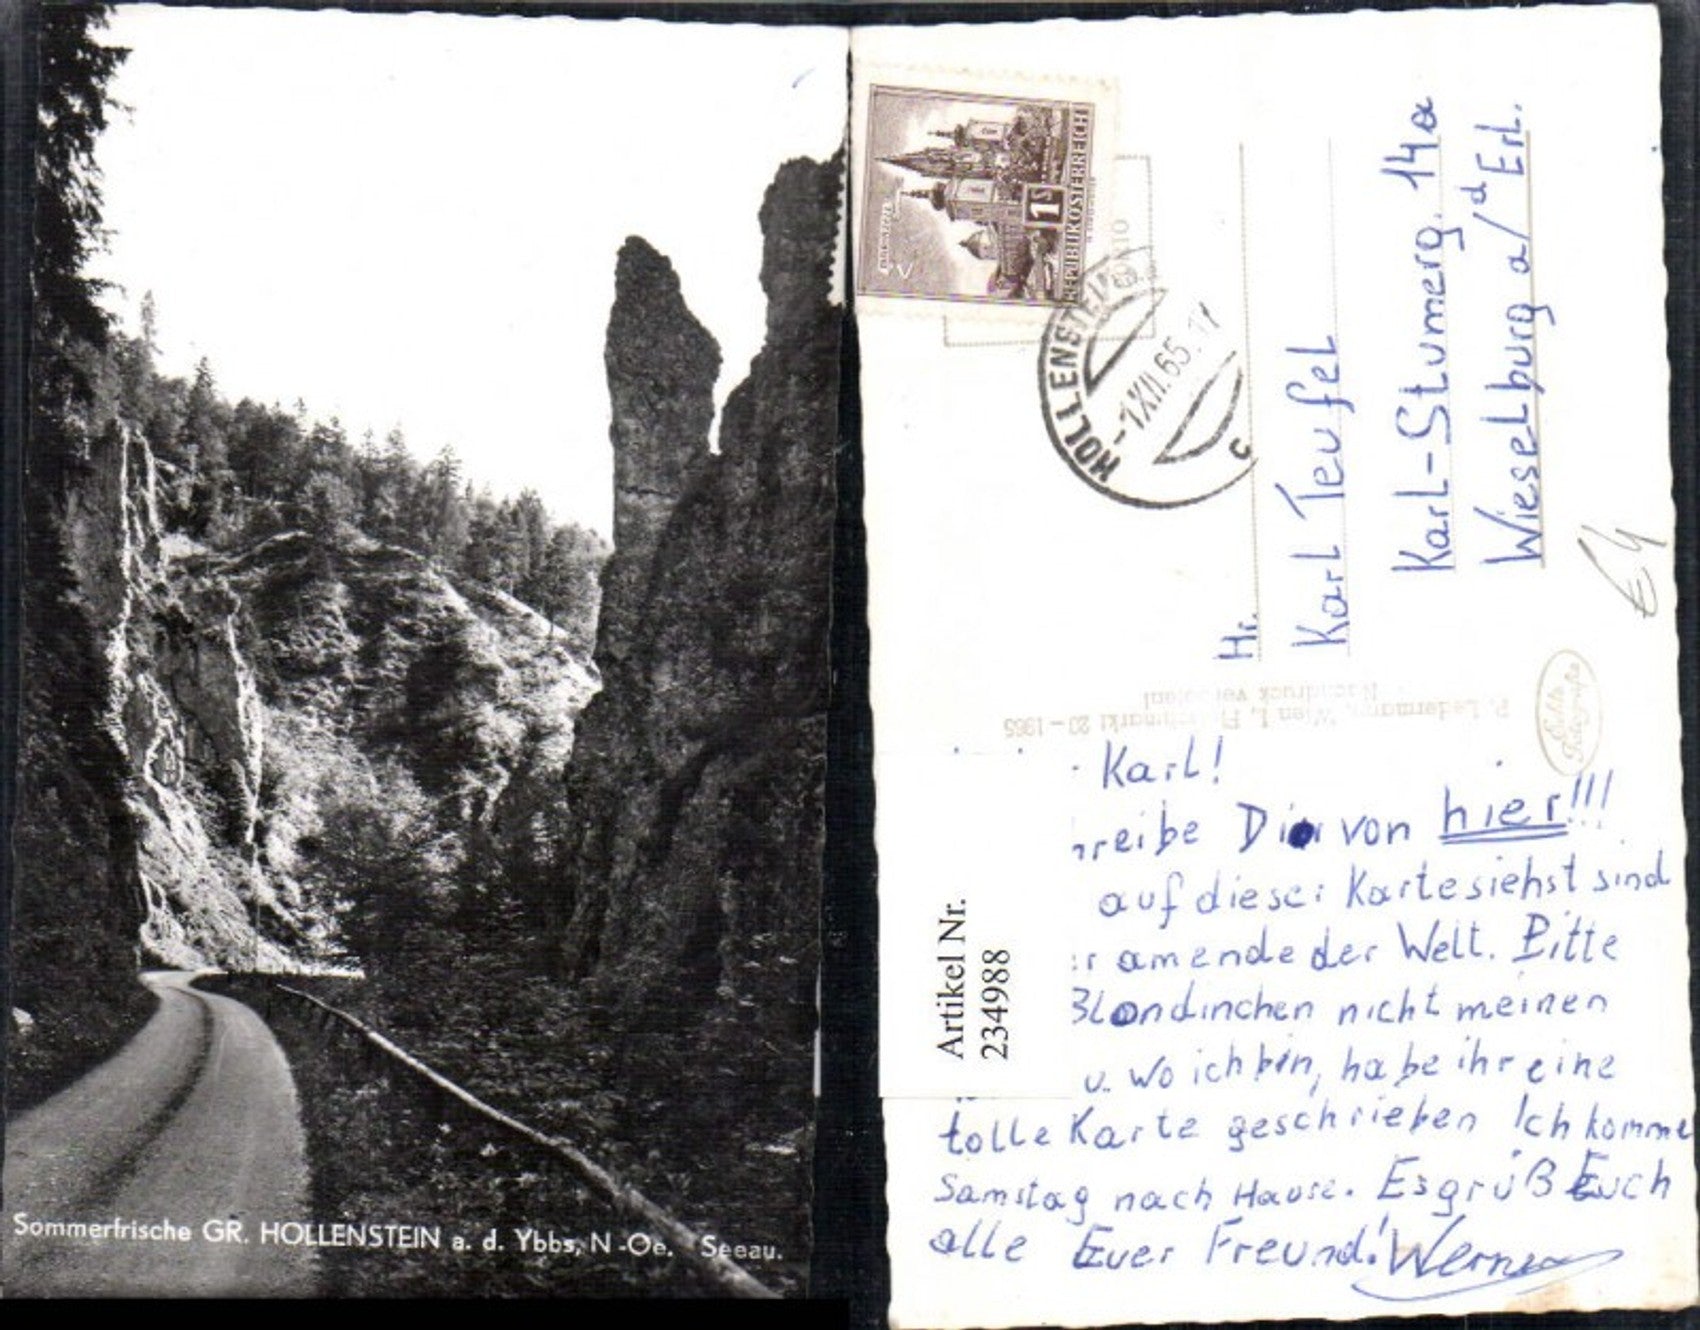 Sommerfrische GR. HOLLENSTEIN a. d. Ybbs, N.-Oe. Seeau.
1 S
REPUBLIK ÖSTERREICH
MARIAZELL
HOLLENSTEIN
-1.XII.65.11
C
Hr.
Karl Teufel
Karl-Stumerg. 14a
Wieselburg a/d Erl.
€ 4
P. Ledermann, Wien I, Fleischmarkt 20 - 1965
Nachdruck verboten!
Echte
Fotografie
Artikel Nr.
234988
Karl!
reibe Dir von hier!!!
auf dieser Karte siehst sind
r am ende der Welt. Bitte
Blondinchen nicht meinen
u. wo ich bin, habe ihr eine
tolle Karte geschrieben Ich komme
Samstag nach Hause. Es grüß Euch
alle Euer Freund! Werner